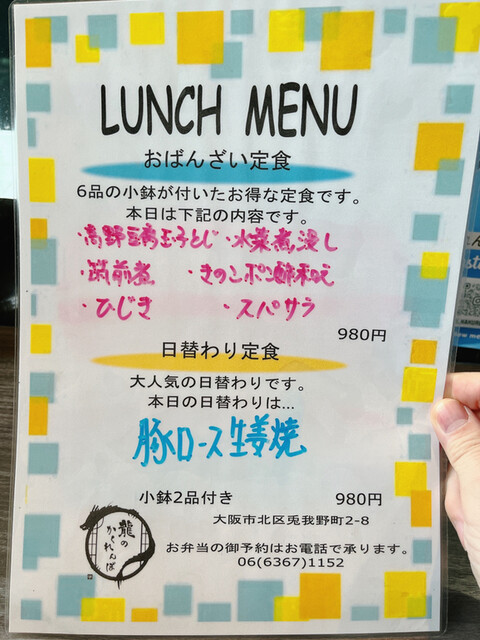 LUNCH MENU
おばんざい定食
6品の小鉢が付いたお得な定食です。
本日は下記の内容です。
・高野豆腐玉子とじ ・水菜煮浸し
・筑前煮 ・きのこポン酢和え
・ひじき ・スパサラ
980円
日替わり定食
大人気の日替わりです。
本日の日替わりは…
豚ロース生姜焼
小鉢2品付き 980円
龍のかくれんぼ
大阪市北区兎我野町2-8
お弁当の御予約はお電話で承ります。
06(6367)1152